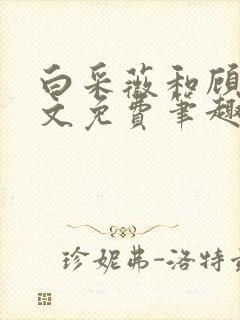 白采薇和顾
文免费笔趣
珍妮弗-洛特